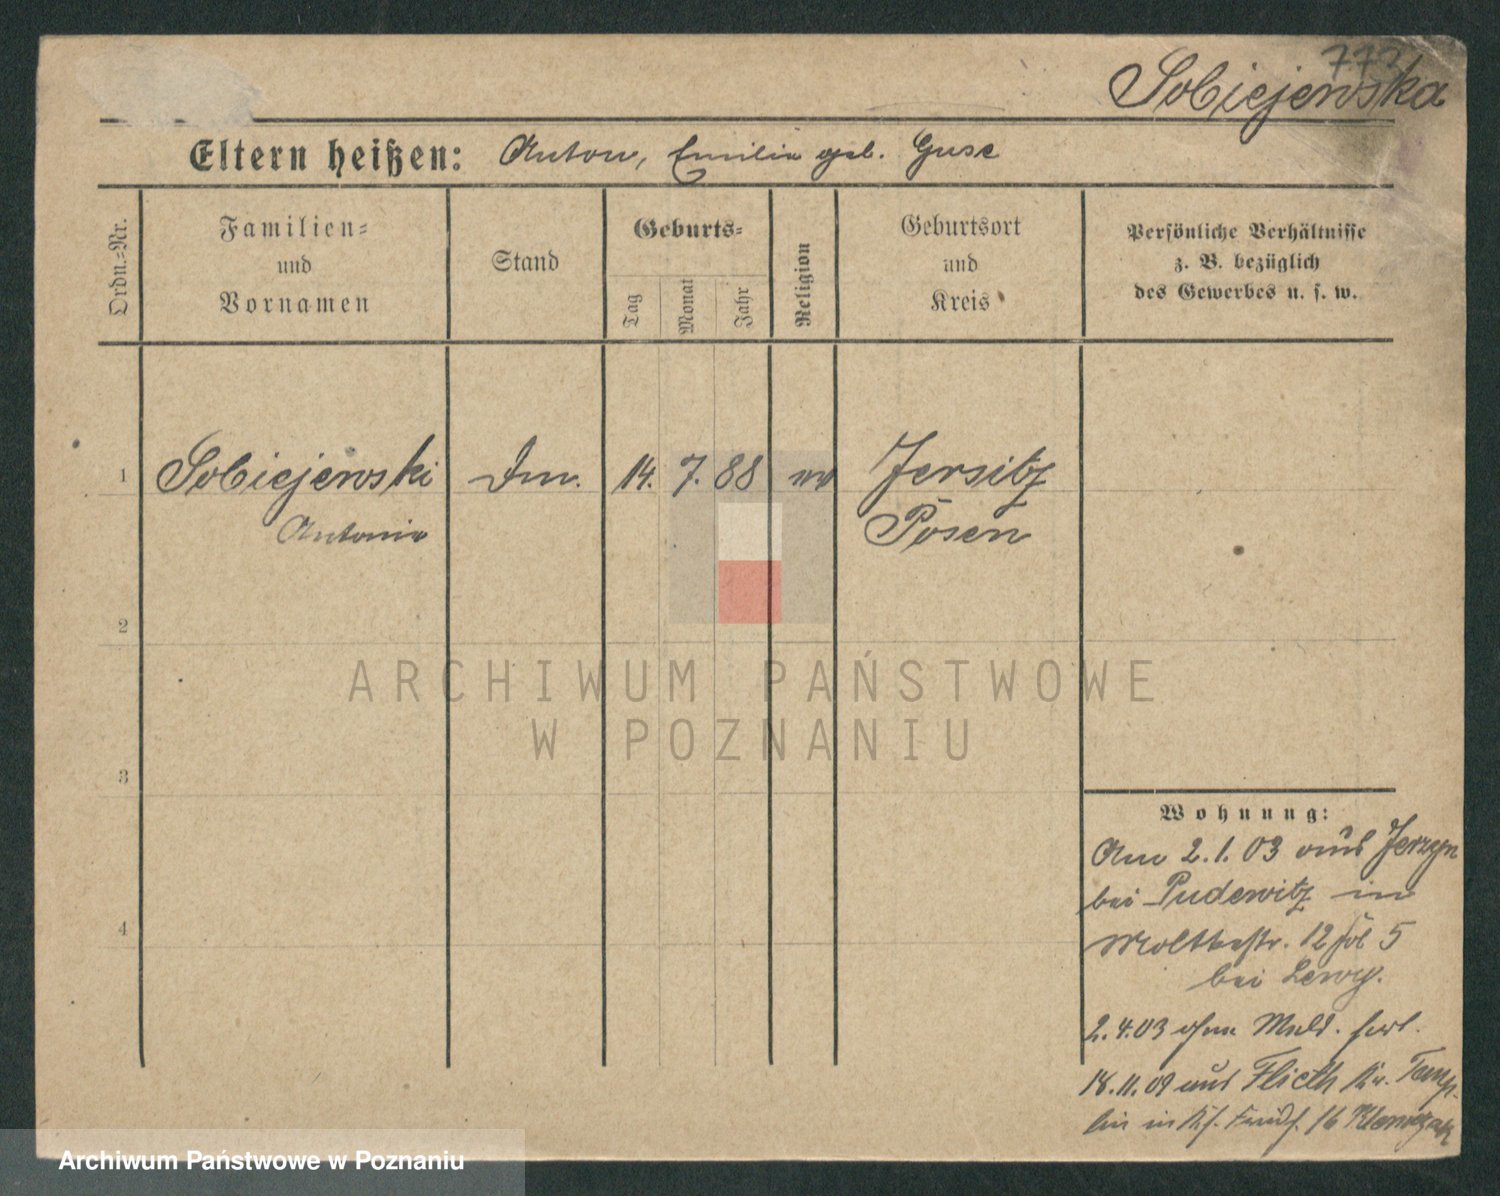 777
Sobiejewska
Eltern heißen: Anton, Emilie geb. Guse
Ordn.=Nr.
Familien=
und
Vornamen
Stand
Geburts=
Tag
Monat
Jahr
Religion
Geburtsort
und
Kreis
Persönliche Verhältnisse
z. B. bezüglich
des Gewerbes u. s. w.
1
Sobiejewski
Antonie
14. 7. 88
Jersitz
Posen
2
3
4
ARCHIWUM PAŃSTWOWE
W POZNANIU
Wohnung:
Am 2.1.03 aus Jerzyn
bei Pudewitz in
Moltkestr. 12 5
bei Lewy.
2.4.03 ohne Meld. fort.
18.11.09 aus Flieth Kr. Temp-
lin in 16
Archiwum Państwowe w Poznaniu